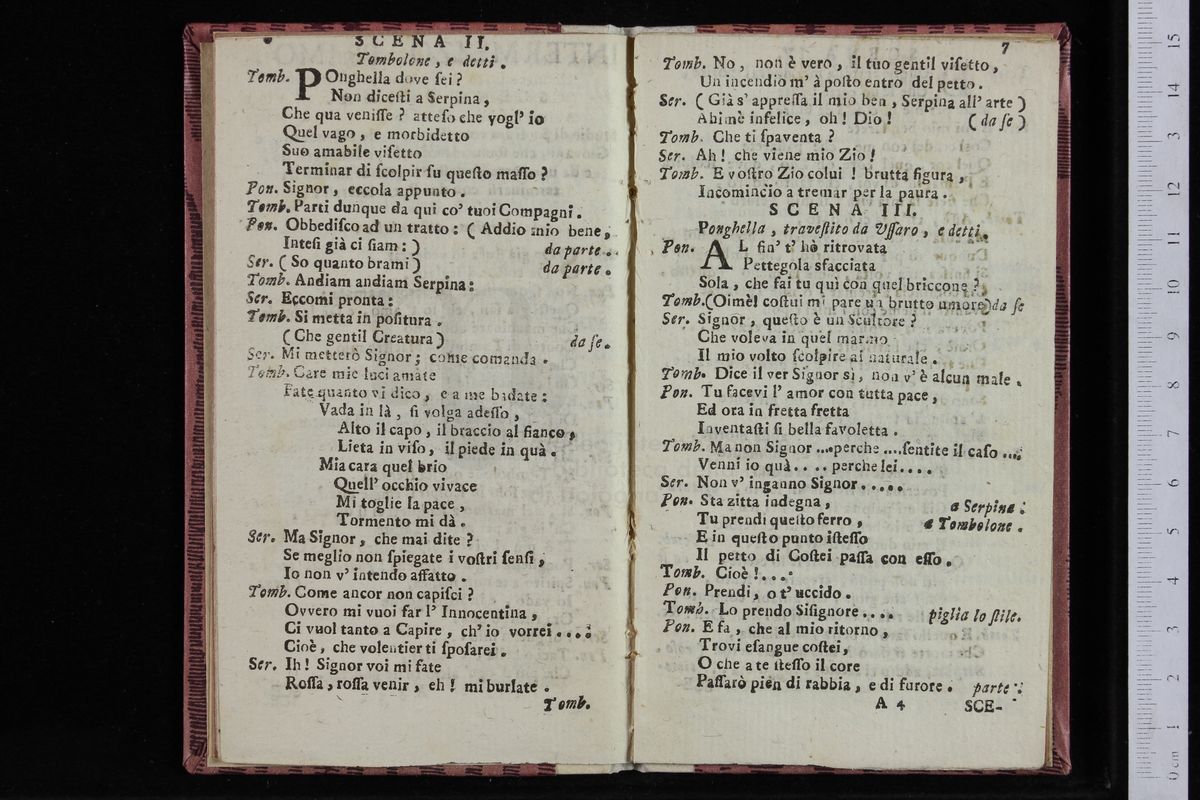 SCENA II.
Tombolone, e detti.
Tomb. POnghella dove ſei?
Non diceſti a Serpina,
Che qua veniſſe? atteſo che vogl' io
Quel vago, e morbidetto
Suo amabile viſetto
Terminar di ſcolpir ſu queſto maſſo?
Pon. Signor, eccola appunto.
Tomb. Parti dunque da qui co' tuoi Compagni.
Pon. Obbediſco ad un tratto: ( Addio mio bene,
Inteſi già ci ſiam: ) da parte.
Ser. ( So quanto brami ) da parte.
Tomb. Andiam andiam Serpina:
Ser. Eccomi pronta:
Tomb. Si metta in poſitura.
( Che gentil Creatura ) da ſe.
Ser. Mi metterò Signor; come comanda.
Tomb. Care mie luci amate
Fate quanto vi dico, e a me badate:
Vada in là, ſi volga adeſſo,
Alto il capo, il braccio al fianco,
Lieta in viſo, il piede in quà.
Mia cara quel brio
Quell' occhio vivace
Mi toglie la pace,
Tormento mi dà.
Ser. Ma Signor, che mai dite?
Se meglio non ſpiegate i voſtri ſenſi,
Io non v' intendo affatto.
Tomb. Come ancor non capiſci?
Ovvero mi vuoi far l' Innocentina,
Ci vuol tanto a Capire, ch' io vorrei....
Cioè, che volentier ti ſpoſarei.
Ser. Ih! Signor voi mi fate
Roſſa, roſſa venir, eh! mi burlate.
Tomb.
7
Tomb. No, non è vero, il tuo gentil viſetto,
Un incendio m' à poſto entro del petto.
Ser. ( Già s' appreſſa il mio ben, Serpina all' arte )
Ahimè infelice, oh! Dio! ( da ſe )
Tomb. Che ti ſpaventa?
Ser. Ah! che viene mio Zio!
Tomb. E voſtro Zio colui! brutta figura,
Incomincio a tremar per la paura.
SCENA III.
Ponghella, traveſtito da Uſſaro, e detti.
Pon. AL fin' t' hò ritrovata
Pettegola sfacciata
Sola, che fai tu quì con quel briccone?
Tomb. (Oimè! coſtui mi pare un brutto umore) da ſe
Ser. Signor, queſto è un Scultore?
Che voleva in quel marmo
Il mio volto ſcolpire al naturale.
Tomb. Dice il ver Signor sì, non v' è alcun male.
Pon. Tu facevi l' amor con tutta pace,
Ed ora in fretta fretta
Inventaſti ſi bella favoletta.
Tomb. Ma non Signor....perche....ſentite il caſo....
Venni io quà.... perche lei....
Ser. Non v' inganno Signor.....
Pon. Sta zitta indegna, a Serpina:
Tu prendi queſto ferro, a Tombolone.
E in queſto punto iſteſſo
Il petto di Coſtei paſſa con eſſo.
Tomb. Cioè!....
Pon. Prendi, o t' uccido.
Tomb. Lo prendo Siſignore.... piglia lo ſtile.
Pon. E fa, che al mio ritorno,
Trovi eſangue coſtei,
O che a te ſteſſo il core
Paſſarò pien di rabbia, e di furore. parte:
A 4 SCE-